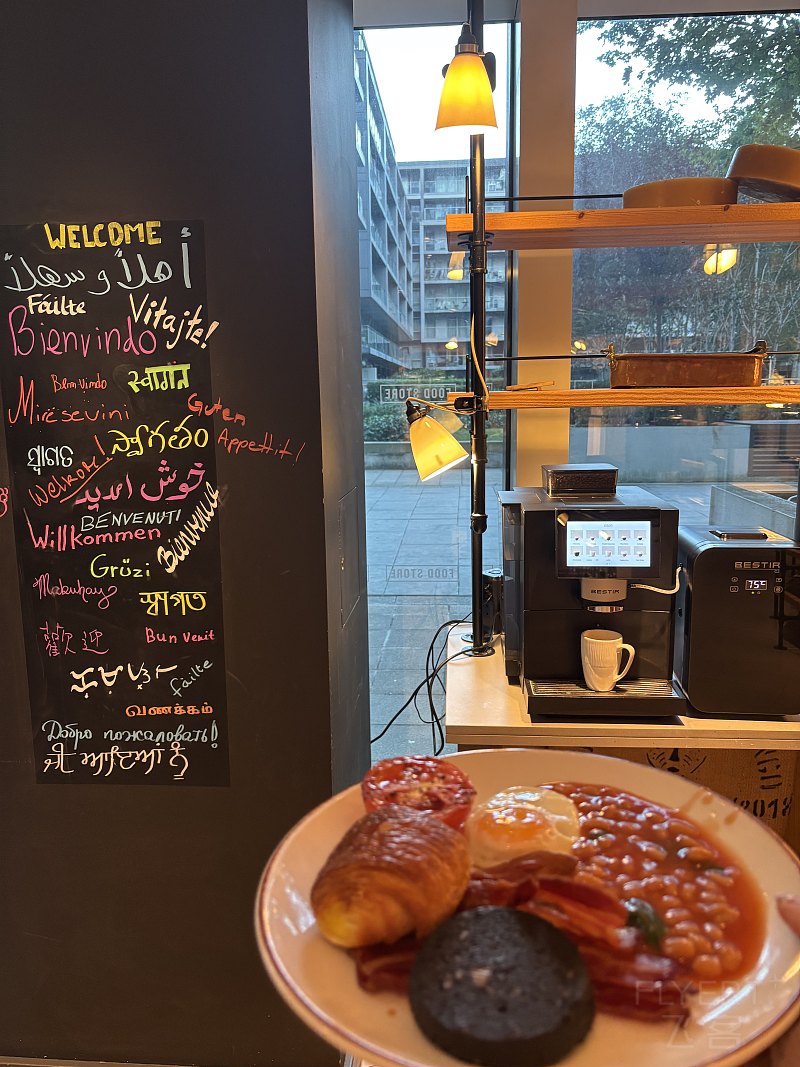 WELCOME
أهلاً و سهلاً
Fáilte
Vitajte!
Bienvindo
Benvindo
स्वागत
Mirësevini
Guten
Appetit!
ସ୍ୱାଗତ
స్వాగతం
Welkom!
خوش امدید
BENVENUTI
Willkommen
Bienvenue
Grüzi
Mabuhay
স্বাগত
歡迎
Bun venit
fáilte
வணக்கம்
Добро пожаловать!
ਜੀ ਆਇਆਂ ਨੂੰ
FOOD STORE
FOOD STORE
BESTIR
BESTIR
75
2018
FLYERT
飞客